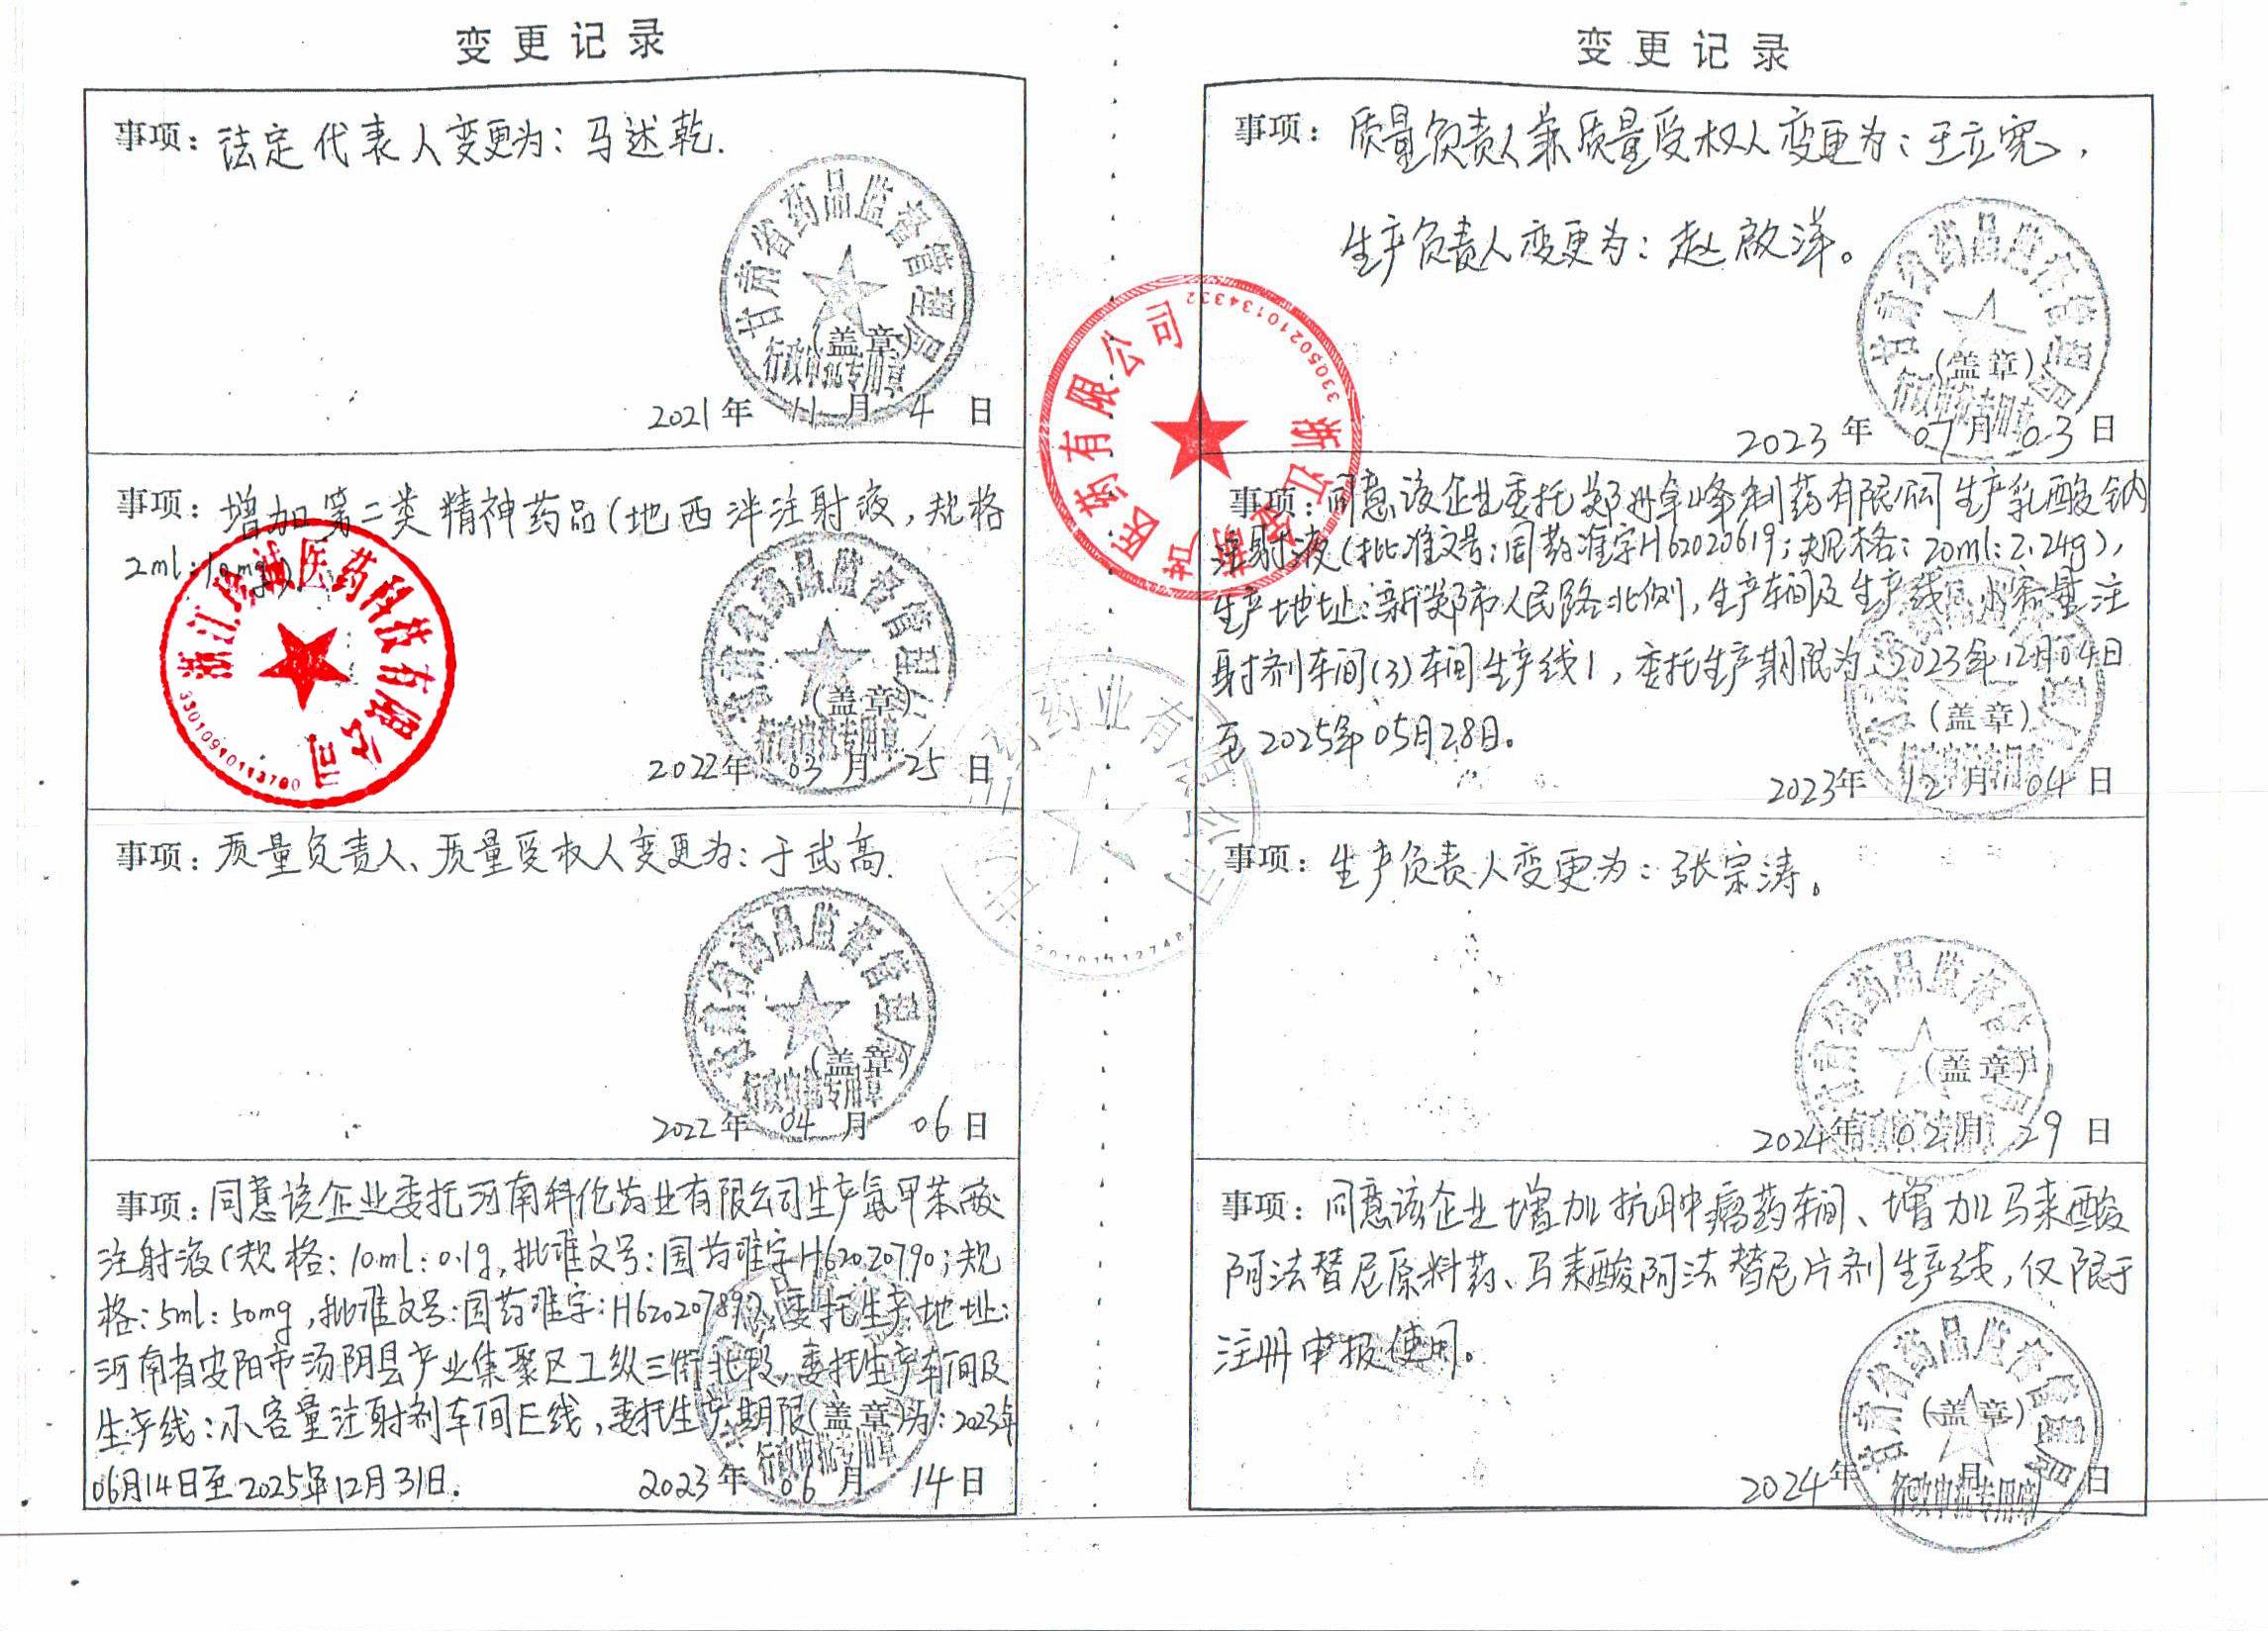 变更记录
事项：法定代表人变更为：马述乾.
甘肃省药品监督管理局
（盖章）
行政审批专用章
2021年 11月 4日
事项：增加第二类精神药品（地西泮注射液，规格
2ml:10mg）
医药科技有限公司
33010910113780
甘肃省药品监督管理局
（盖章）
行政审批专用章
2022年 03月 25日
事项：质量负责人、质量受权人变更为：于武高.
甘肃省药品监督管理局
（盖章）
行政审批专用章
2022年 04月 06日
事项：同意该企业委托河南科伦药业有限公司生产氨甲苯酸
注射液（规格：10ml:0.1g,批准文号：国药准字H62020790；规
格：5ml:50mg,批准文号：国药准字：H62020789）委托生产地址：
河南省安阳市汤阴县产业集聚区工纵三街北段，委托生产车间及
生产线：小容量注射剂车间E线，委托生产期限（盖章）为：2023年
06月14日至2025年12月31日.
行政审批专用章
2023年 06月 14日
药业有限公司
变更记录
事项：质量负责人兼质量受权人变更为：王立宽，
生产负责人变更为：赵啟洋。
甘肃省药品监督管理局
（盖章）
行政审批专用章
2023年 07月 03日
医药有限公司
33050210134332
事项：同意该企业委托郑州卓峰制药有限公司生产乳酸钠
注射液（批准文号：国药准字H62020619；规格：20ml:2.24g），
生产地址：新郑市人民路北侧，生产车间及生产线：小容量注
射剂车间(3)车间生产线1，委托生产期限为：2023年12月04日
至2025年05月28日。
（盖章）
2023年 12月 04日
事项：生产负责人变更为：张宗涛。
甘肃省药品监督管理局
（盖章）
2024年 02月 29日
事项：同意该企业增加抗肿瘤药车间、增加马来酸
阿法替尼原料药、马来酸阿法替尼片剂生产线，仅限于
注册申报使用。
甘肃省药品监督管理局
（盖章）
行政审批专用章
2024年 月 日